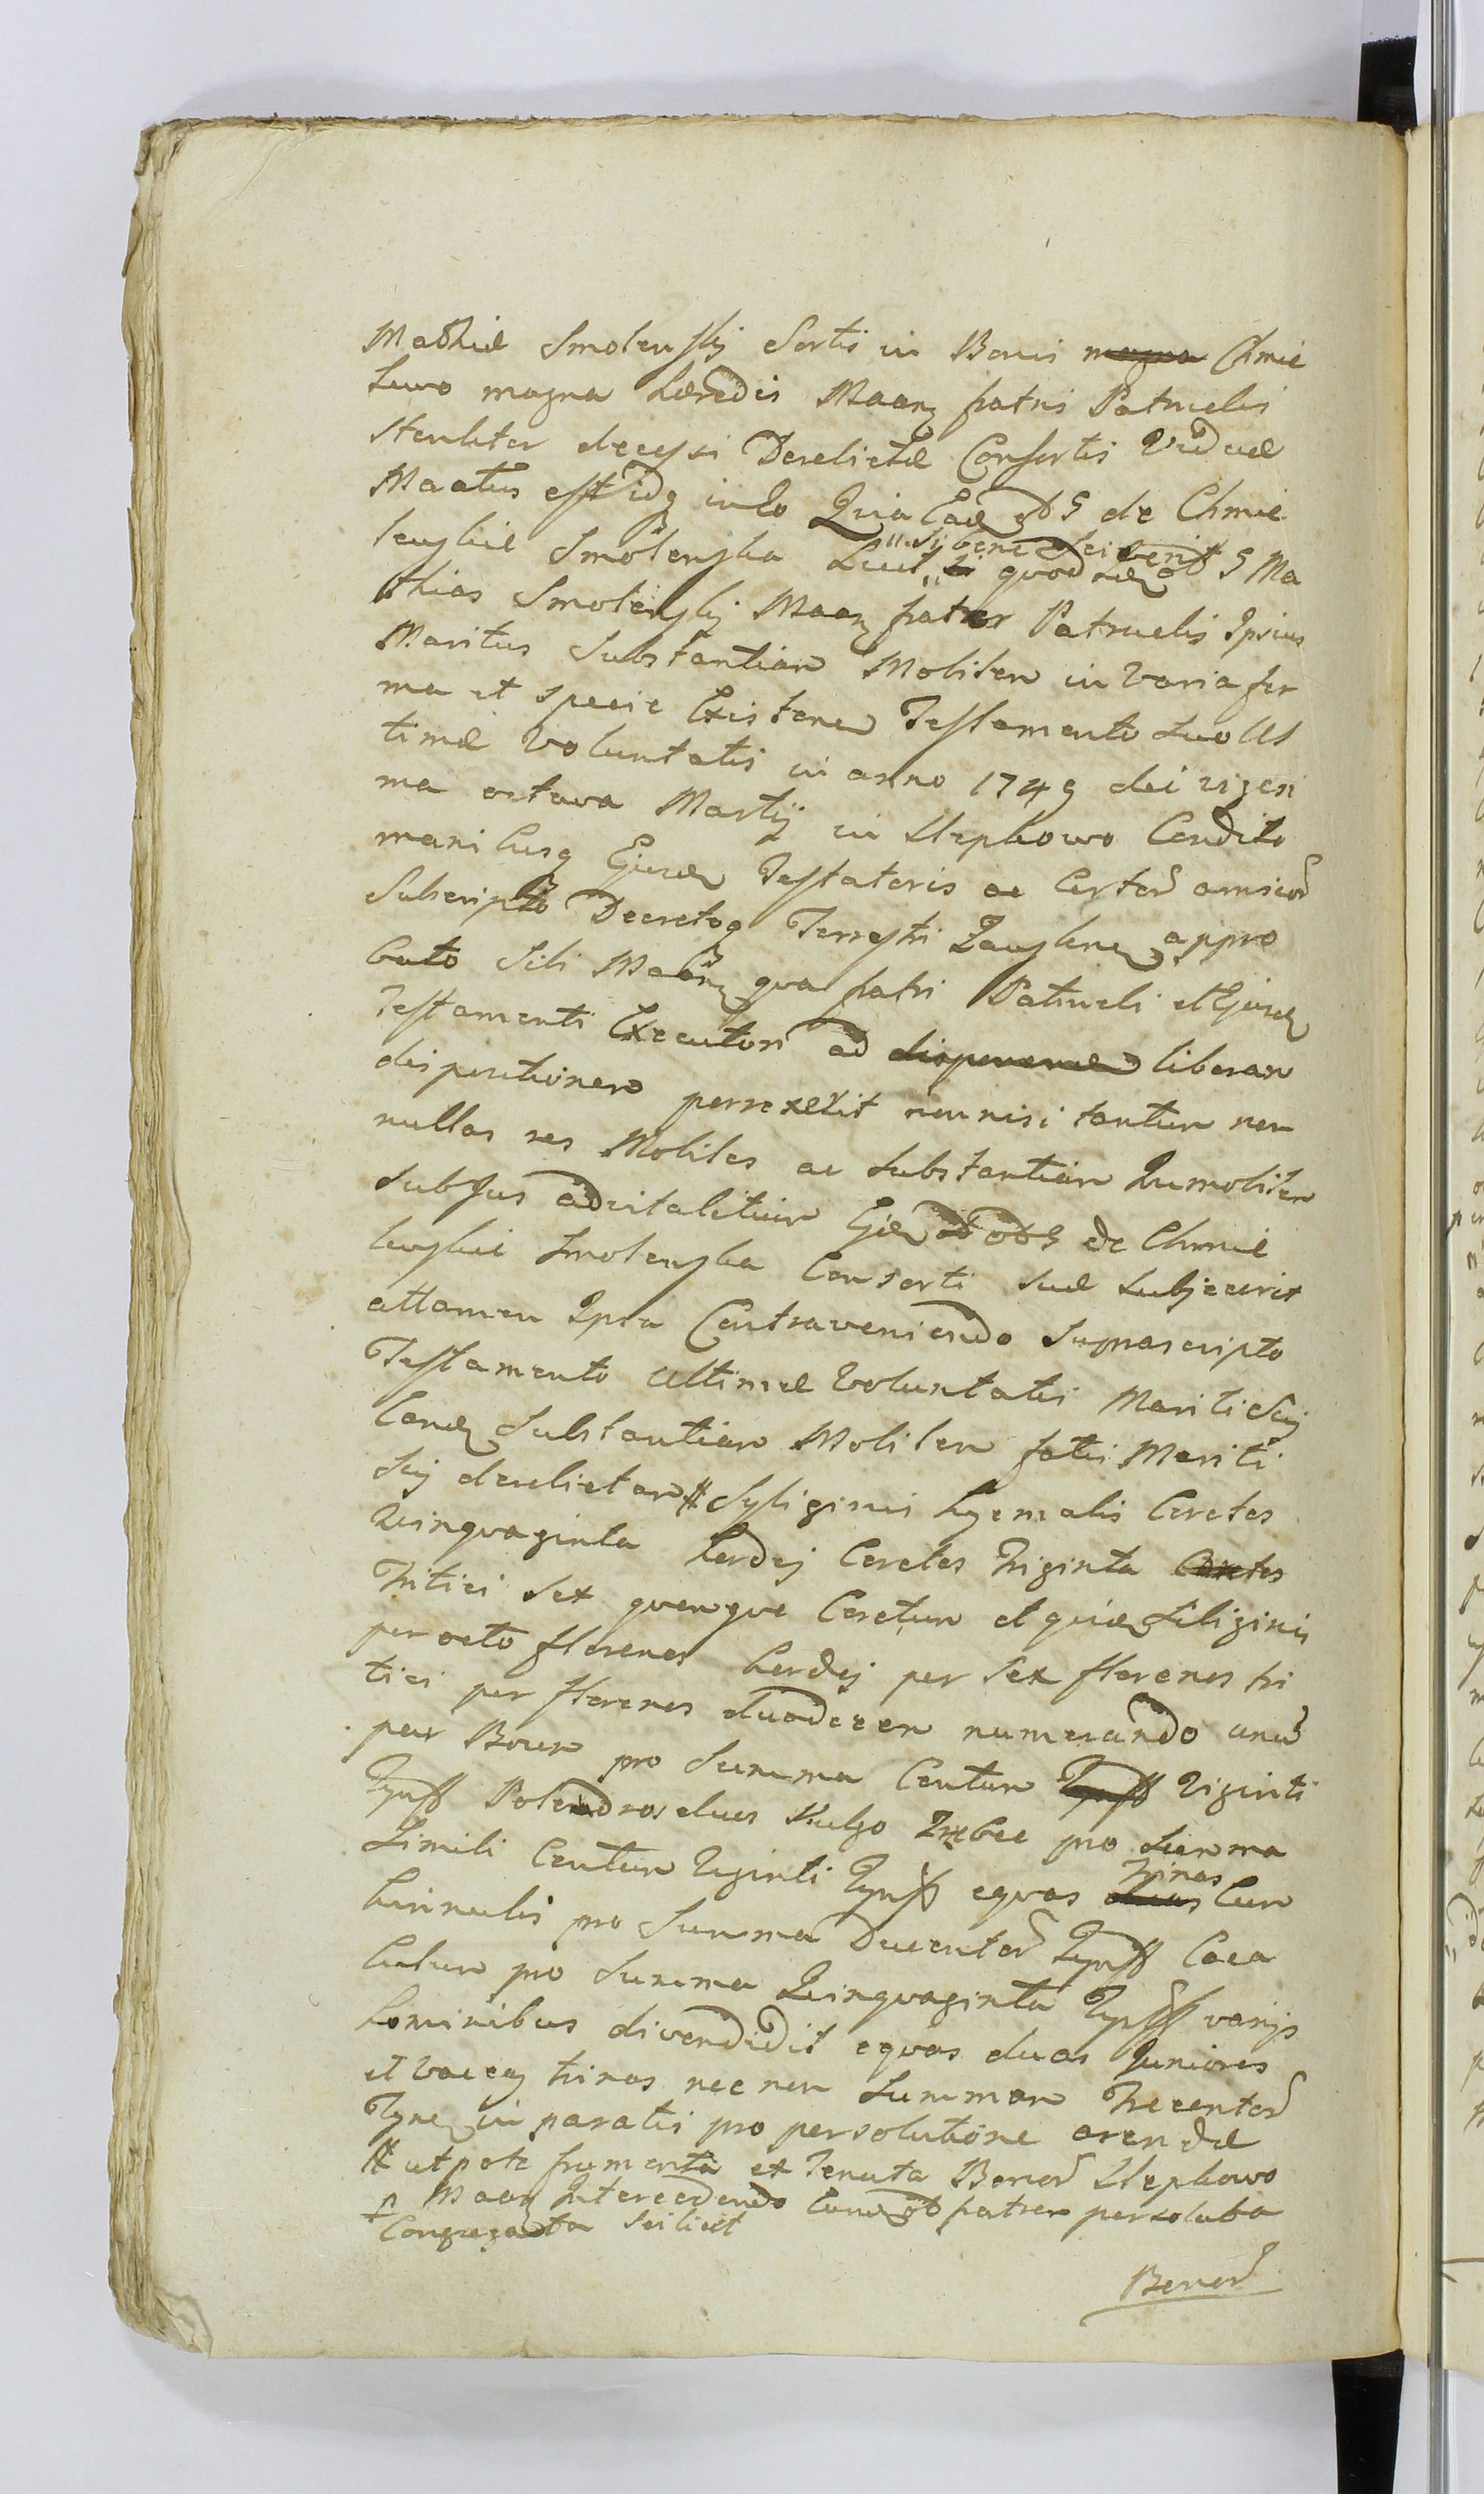 Mathiæ Smolenskj Sortis in Bonis magna Chmie
lewo magna hæredis Maanz fratris Patruelis
steriliter decessi Derelictæ Consortis Viduæ
Maatus est idq in eo Quia Eadz de Chmie
lewskie Smolenska Licet si bene sciverit
quod G Ma
thias Smolenskj Maanz frater Patruelis Ipsius
Maritus Substantiam Mobilem in varia for
ma et specie Existenem Testamento suo Ul
timæ Voluntatis in anno 1749 die vigesi
ma octava Martij in Slepkowo Condito
manibusq Ejusdz Testatoris ac Certor amicor
Subscripto Decretoq Terrestri appro
bato Sibi Maanz qua fratri Patrueli et Ejusdz
Testamenti Executori ad disponendam liberam
dispositionem perrexerit nonnisi tantum non
nullas res Mobiles ac Substantiam Immobilem
Sub Jus advitalitium Ejdz de Chmie
lewskie Smolenska Consorti suæ Subjecerit
attamen Ipsa Contraveniendo Suprascripto
Testamento Ultimæ Voluntatis Mariti Suj
Eandz Substantiam Mobilem fatis Mariti
Suj derelictam # Syliginis hyemalis Coretos
Quinquaginta hordej Coretos Triginta Coretos
Tritici Sex quemque Coretum et quidz Siliginis
per octo florenos hordej per Sex florenos tri
tici per florenos duodecem numerando unu
par Boum pro Summa Centum Tynff Viginti
Tynff Poledros duos Vulgo Zrebce pro Summa
Simili Centum Viginti Tynff equas duas trinas Cum
hinnulis pro Summa Ducentor Tynff Caca
bulum pro Summa Quinquaginta Tynff varijs
hominibus divendidit equas duas Juniores
et vaccas trinas nec non Summam Trecentor
Tynff in paratis pro persolutione arendæ
# utpote frumenta ex Tenuta Bonor Slepkowo
Maanz Intercedendo fratrem persoluta
Congregata scilicet
Bonor